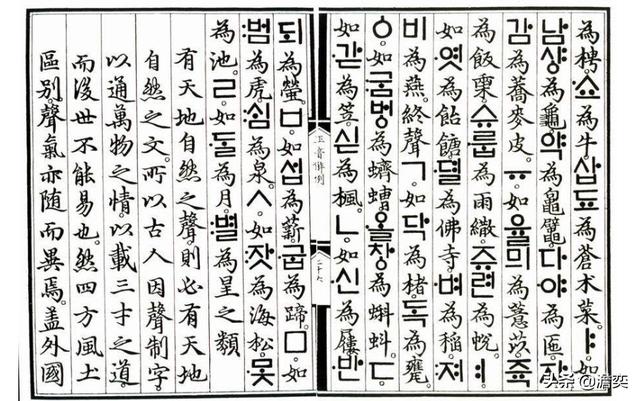 為梬。쇼為牛。삽됴為蒼朮菜。ㅑ。如
남샹為龜。약為𪓟鼊。다야為匜。쟈
감為蕎麥皮。ㅠ。如율믜為薏苡。쥭
為飯𣖄。슈룹為雨繖。쥬련為帨。ㅕ。
如엿為飴餹。뎔為佛寺。벼為稻。져
비為燕。終聲ㄱ。如닥為楮。독為甕。
ㆁ。如굼벙為蠐螬。올창為蝌蚪。ㄷ。
如갇為笠。싣為楓。ㄴ。如신為屨。반
正音解例 二十六
되為螢。ㅂ。如섭為薪。굽為蹄。ㅁ。如
범為虎。심為泉。ㅅ。如잣為海松。못
為池。ㄹ。如ᄃᆞᆯ為月。별為星之類
有天地自然之聲。則必有天地
自然之文。所以古人因聲制字。
以通萬物之情。以載三才之道。
而後世不能易也。然四方風土
區別。聲氣亦隨而異焉。蓋外國
头条 @澹奕